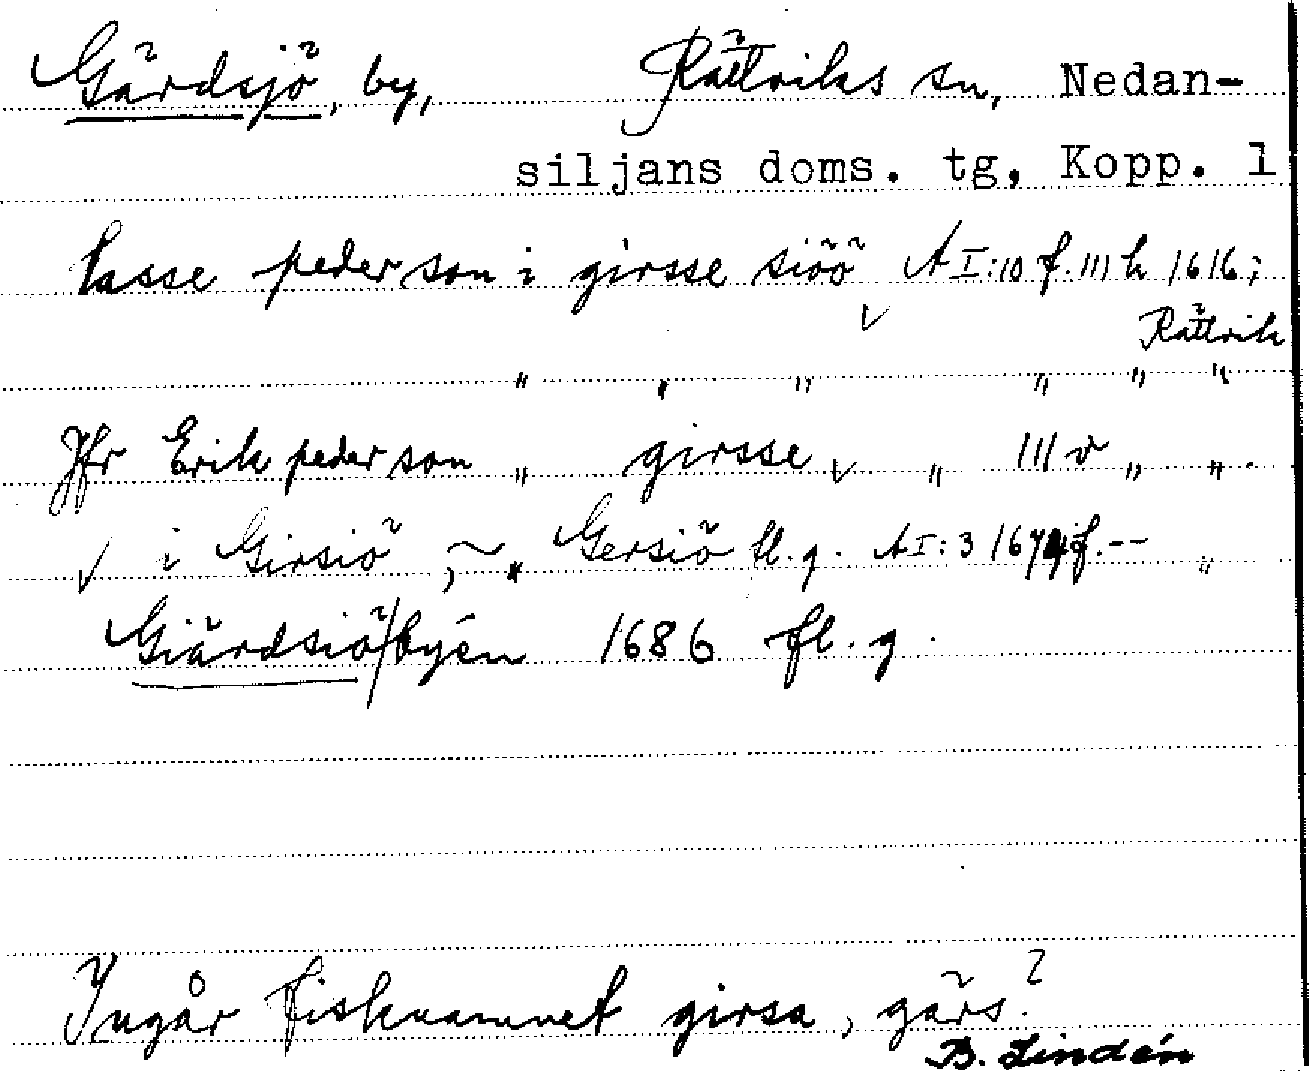 Gärdsjö, by, Rättviks sn, Nedan-
siljans doms. tg, Kopp. l
Lasse pederson i girsse siöö A I:10 f. 111 h 1616;
Rättvik
" " " " " "
Jfr Erik pederson " girsse " 111 v " ".
i Girsiö, Gersiö fl. g. A I:3 1674 f. -- "
Giärdsiö/byén 1686 fl. g.
Ingår fisknamnet girsa, gärs?
B. Lindén